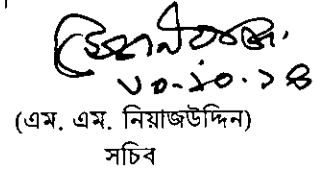 ৮০.১০.১৪
(এম. এম. নিয়াজউদ্দিন)
সচিব